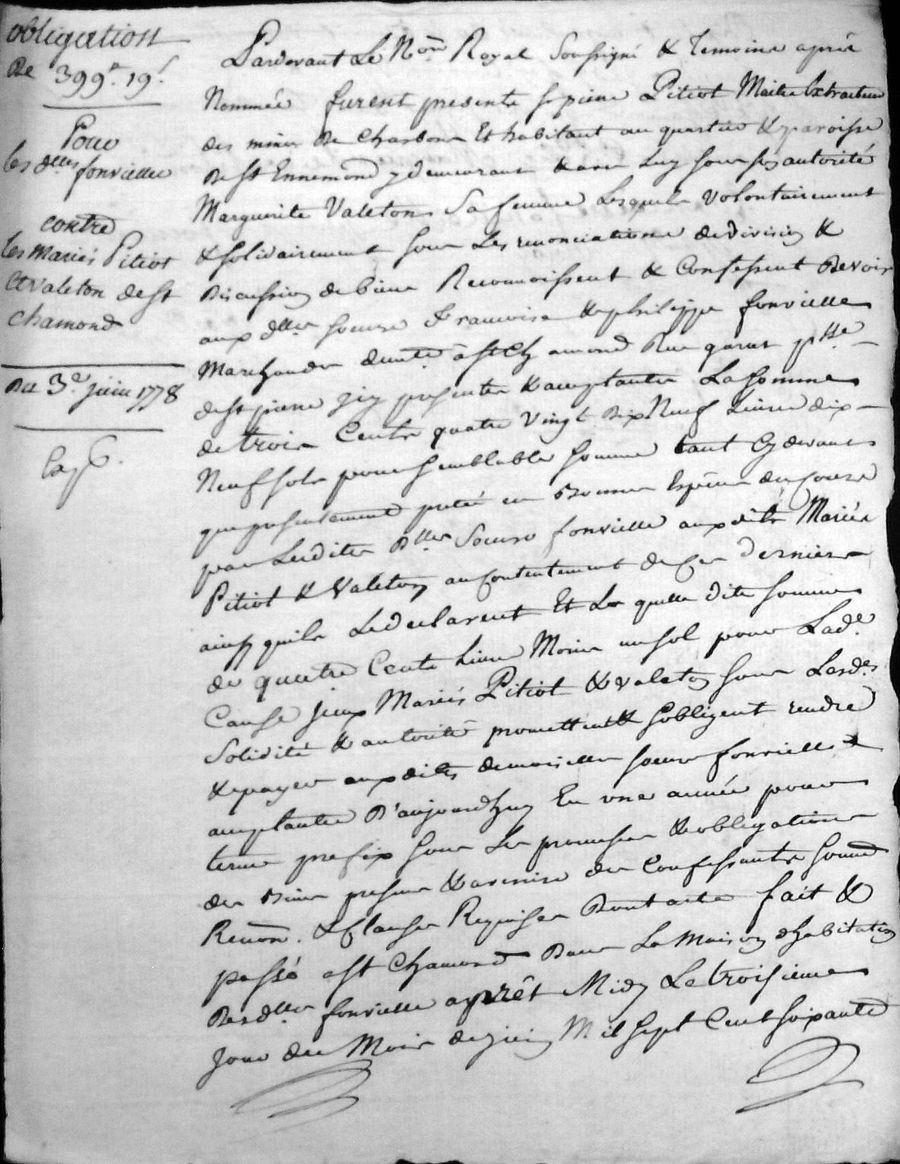 obligation
De 399# 19s
Pour
les dlles fonvielle
contre
les Mariés Pitiot
et valeton de st
chamond
Du 3e juin 1778
Pardevant Le Nore Royal Soussigné & temoins après
Nommés furent présents sr pierre Pitiot Maitre Extracteur
des mines De charbon Et habitant au quartier & paroisse
De st Ennemond y demeurant & avec Luy sous son autorité
Marguerite Valeton Sa femme Lesquels Volontairement
& solidairement sous Les renonciations de division &
Discussion de biens Reconnoissent & Confessent Devoir
aux dlles soeurs francoise & philippe fonvielle
Marchandes demts à st Chamond Rue garat psse
de st pierre icy presentes & acceptantes La somme
de trois Cents quatre vingt Dix Neuf Livres dix
Neuf sols pour semblable somme tant Cydevant
que présentement preté en Bonnes Espèces du Cours
par Lesdites Dlles Soeurs fonvielle auxdits Mariés
Pitiot & Valeton au Contentement de Ces derniers
ainsy quils Le declarent Et La quelle dite somme
de quatre Cents Livres Moins un sol pour Lade
Cause iceux Mariés Pitiot & valeton sous Lesdes
Solidité & autorité promettent & sobligent rendre
& payer auxdites demoiselles soeurs fonvielle
acceptantes D'aujourdhuy En une année pour
terme prefix sous Les promesses & obligations
de Biens presens & avenirs des Confessants soumn
Renon. & Clauses Requises Dont acte fait &
passé a st Chamond Dans La Maison d'habitation
Desdlles fonvielle aprèt Midy Le troisieme
jour du Mois de juin Mil sept Cent soixante